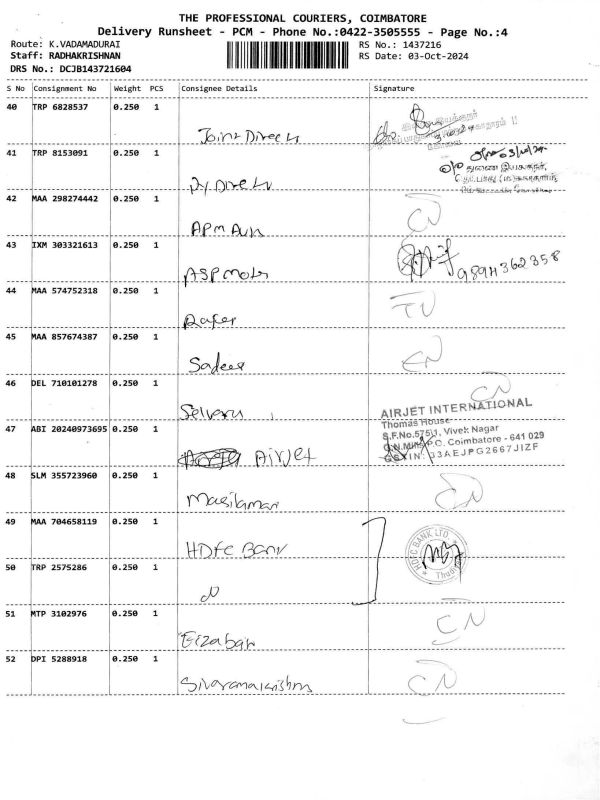 THE PROFESSIONAL COURIERS, COIMBATORE
Delivery Runsheet - PCM - Phone No.:0422-3505555 - Page No.:4
Route: K.VADAMADURAI
RS No.: 1437216
Staff: RADHAKRISHNAN
RS Date: 03-Oct-2024
DRS No.: DCJB143721604
S No Consignment No Weight PCS Consignee Details Signature
40 TRP 6828537 0.250 1
Joint Direct
41 TRP 8153091 0.250 1
03/10/24
Dy Direct
42 MAA 298274442 0.250 1
APM Aun
43 IXM 303321613 0.250 1
ASP Mots
9894362358
44 MAA 574752318 0.250 1
45 MAA 857674387 0.250 1
46 DEL 710101278 0.250 1
Selvaru
AIRJET INTERNATIONAL
Thomas House
47 ABI 20240973695 0.250 1
S.F.No.575/1, Vivek Nagar
Coimbatore - 641 029
Airjet
GSTIN: 33AEJPG2667J1ZF
48 SLM 355723960 0.250 1
CN
Masilamani
49 MAA 704658119 0.250 1
HDFC Bank
HDFC BANK LTD.
50 TRP 2575286 0.250 1
51 MTP 3102976 0.250 1
CN
52 DPI 5288918 0.250 1
Sivaramakrishna
CN